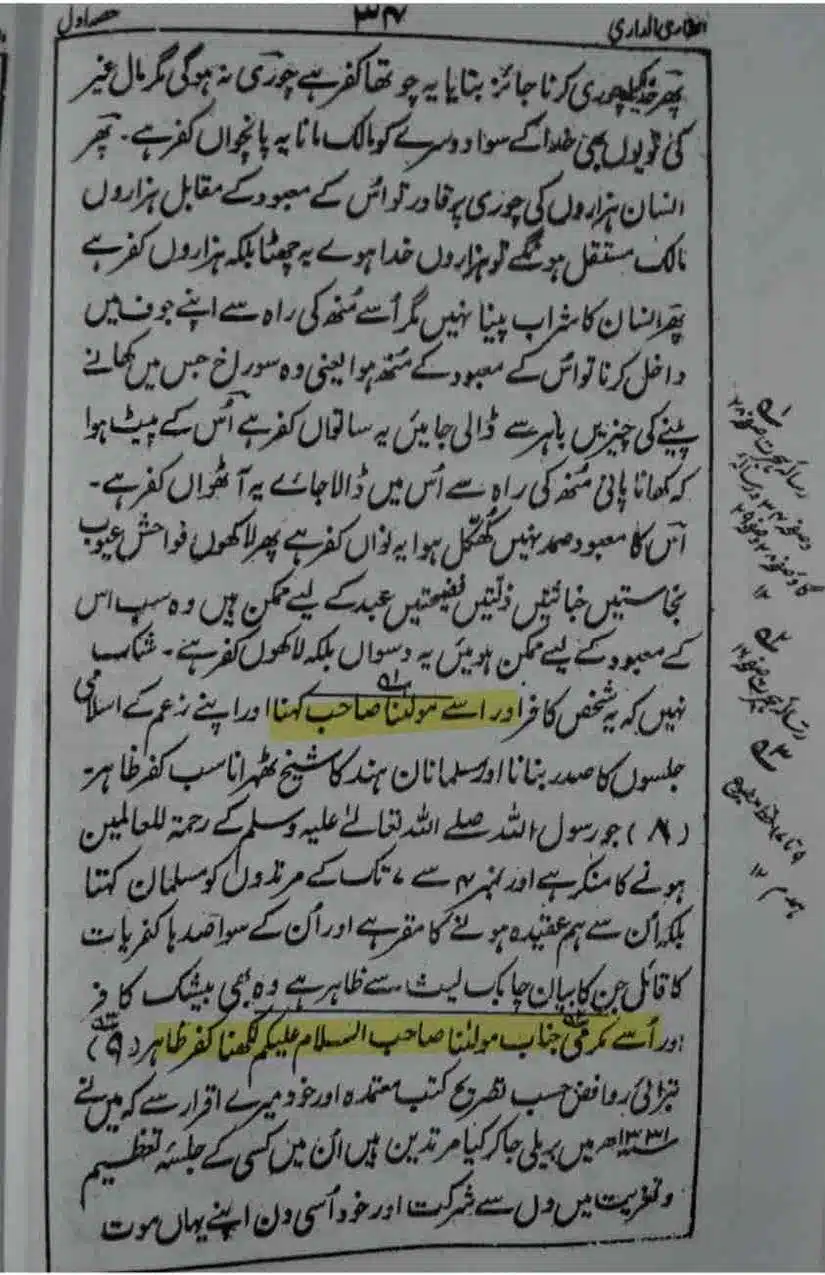 الطاری الداری ۳۴ حصہ اول
پھر خدا کیلیے چوری کرنا جائز بتایا یہ چوتھا کفر ہے چوری نہ ہوگی مگر مال غیر
کی تو یوں بھی خدا کے سوا دوسرے کو مالک مانا یہ پانچواں کفر ہے۔ پھر
انسان ہزاروں کی چوری پر قادر تو اُس کے معبود کے مقابل ہزاروں
مالک مستقل ہونگے تو ہزاروں خدا ہوے یہ چھٹا بلکہ ہزاروں کفر ہے
پھر انسان کا شراب پینا نہیں مگر اُسے مُنھ کی راہ سے اپنے جوف میں
داخل کرنا تو اُس کے معبود کے مُنھ ہوا یعنی وہ سوراخ جس میں کھانے
پینے کی چیزیں باہر سے ڈالی جائیں یہ ساتواں کفر ہے اُس کے پیٹ ہوا
کہ کھانا پانی مُنھ کی راہ سے اُس میں ڈالا جائے یہ آٹھواں کفر ہے۔
اُس کا معبود صمد نہیں کُھکّل ہوا یہ نواں کفر ہے پھر لاکھوں فواحش عیوب
نجاستیں خباثتیں ذلّتیں فضیحتیں عبد کے لیے ممکن ہیں وہ سب اس
کے معبود کے لیے ممکن ہوئیں یہ دسواں بلکہ لاکھوں کفر ہے۔ شک
نہیں کہ یہ شخص کافر اور اسے مولٰنا صاحب کہنا اور اپنے زعم کے اسلامی
جلسوں کا صدر بنانا اور مسلمانان ہند کا شیخ ٹھہرانا سب کفر ظاہر
(۸) جو رسول اللہ صلے اللہ تعالےٰ علیہ وسلم کے رحمۃ للعالمین
ہونے کا منکر ہے اور نمبر ۴ سے ۷ تک کے مرتدوں کو مسلمان کہتا
بلکہ اُن سے ہم عقیدہ ہونے کا مقر ہے اور اُن کے سوا صدہا کفریات
کا قائل جن کا بیان چابک لیث سے ظاہر ہے وہ بھی بیشک کافر
اور اُسے مکرمی جناب مولٰنا صاحب السلام علیکم لکھنا کفر ظاہر (۹)
تبرائی روافض حسب تصریح کتب معتمدہ اور خود میرے اقرار سے کہ میں نے
۱۳۳۱ھ میں بریلی جاکر کیا مرتدین ہیں اُن میں کسی کے جلسۂ تعظیم
و تعزیت میں دل سے شرکت اور خود اُسی دن اپنے یہاں موت
۱؎ رسالہ ہجرت صفحہ
۲؎ رسالہ ہجرت صفحہ
۳؎